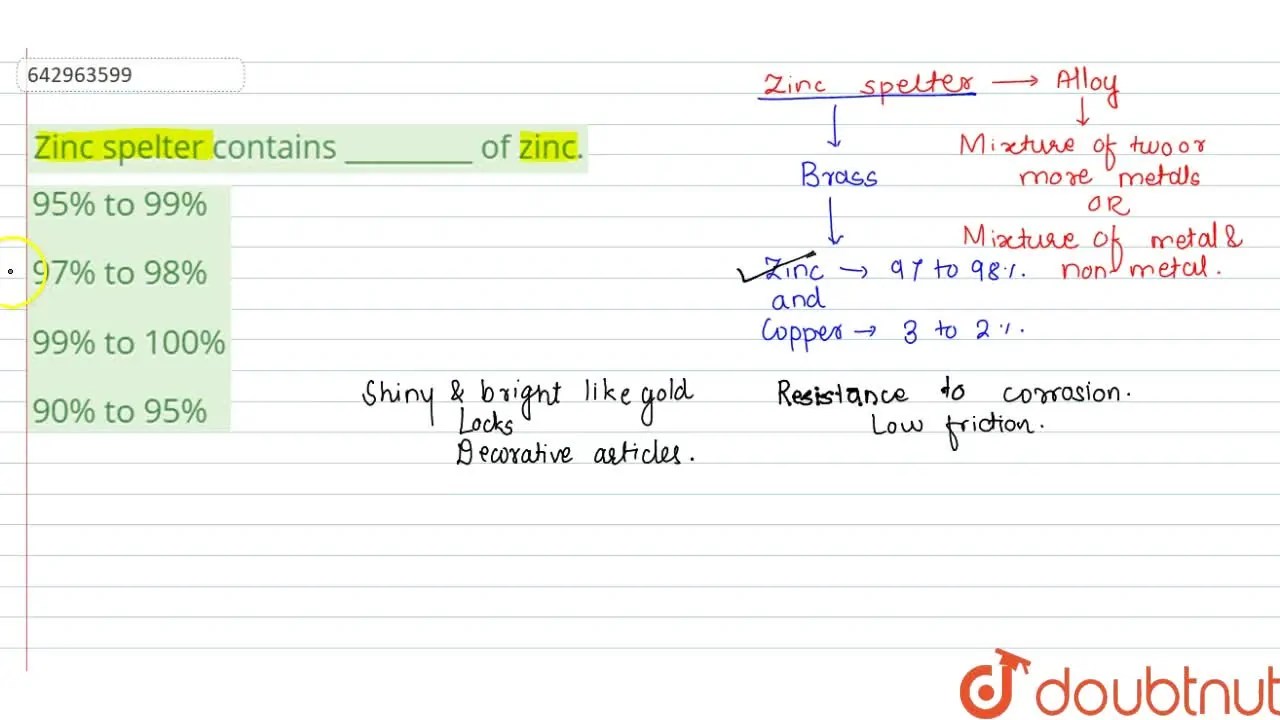 642963599
Zinc spelter contains ________ of zinc.
95% to 99%
97% to 98%
99% to 100%
90% to 95%
Zinc spelter → Alloy
↓ ↓
Brass
Mixture of two or
more metals
OR
Mixture of metal &
non metal.
↓
Zinc → 97 to 98%.
and
Copper → 3 to 2%.
Shiny & bright like gold
Locks
Decorative articles.
Resistance to corrosion.
Low friction.
doubtnut